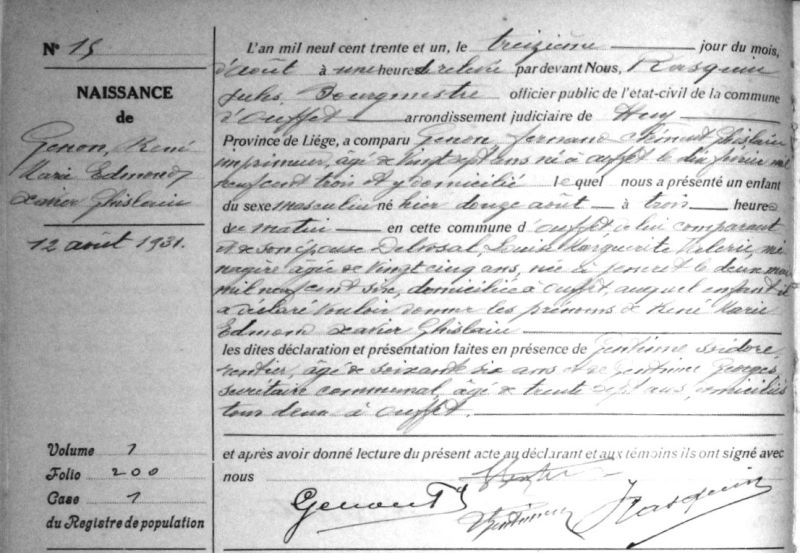 N° 15
NAISSANCE
de
Genon, René
Marie Edmond
Xavier Ghislain
12 août 1931.
Volume 1
Folio 200
Case 1
du Registre de population
L'an mil neuf cent trente et un, le treizième jour du mois,
d'août à une heure de relevée par devant Nous, Rasquin
Jules, Bourgmestre officier public de l'état-civil de la commune
d'Ouffet arrondissement judiciaire de Huy
Province de Liége, a comparu Genon, Fernand Clément Ghislain
imprimeur, âgé de vingt sept ans né à Ouffet le dix février mil
neuf cent trois et y domicilié lequel nous a présenté un enfant
du sexe masculin né hier douze août à trois heures
du matin en cette commune d'Ouffet, de lui comparant
et de son épouse Delvosal, Louise Marguerite Valerie, mé
nagère âgée de vingt cinq ans, née à le deux
mil neuf cent six, domiciliée à Ouffet, auquel enfant il
a déclaré vouloir donner les prénoms de René Marie
Edmond Xavier Ghislain
les dites déclaration et présentation faites en présence de Gentinne Isidore,
rentier, âgé de soixante six ans et de Gentinne Georges,
secrétaire communal, âgé de trente sept ans, domiciliés
tous deux à Ouffet.
et après avoir donné lecture du présent acte au déclarant et aux témoins ils ont signé avec
nous
Genon Fd
Gentinne
J Rasquin